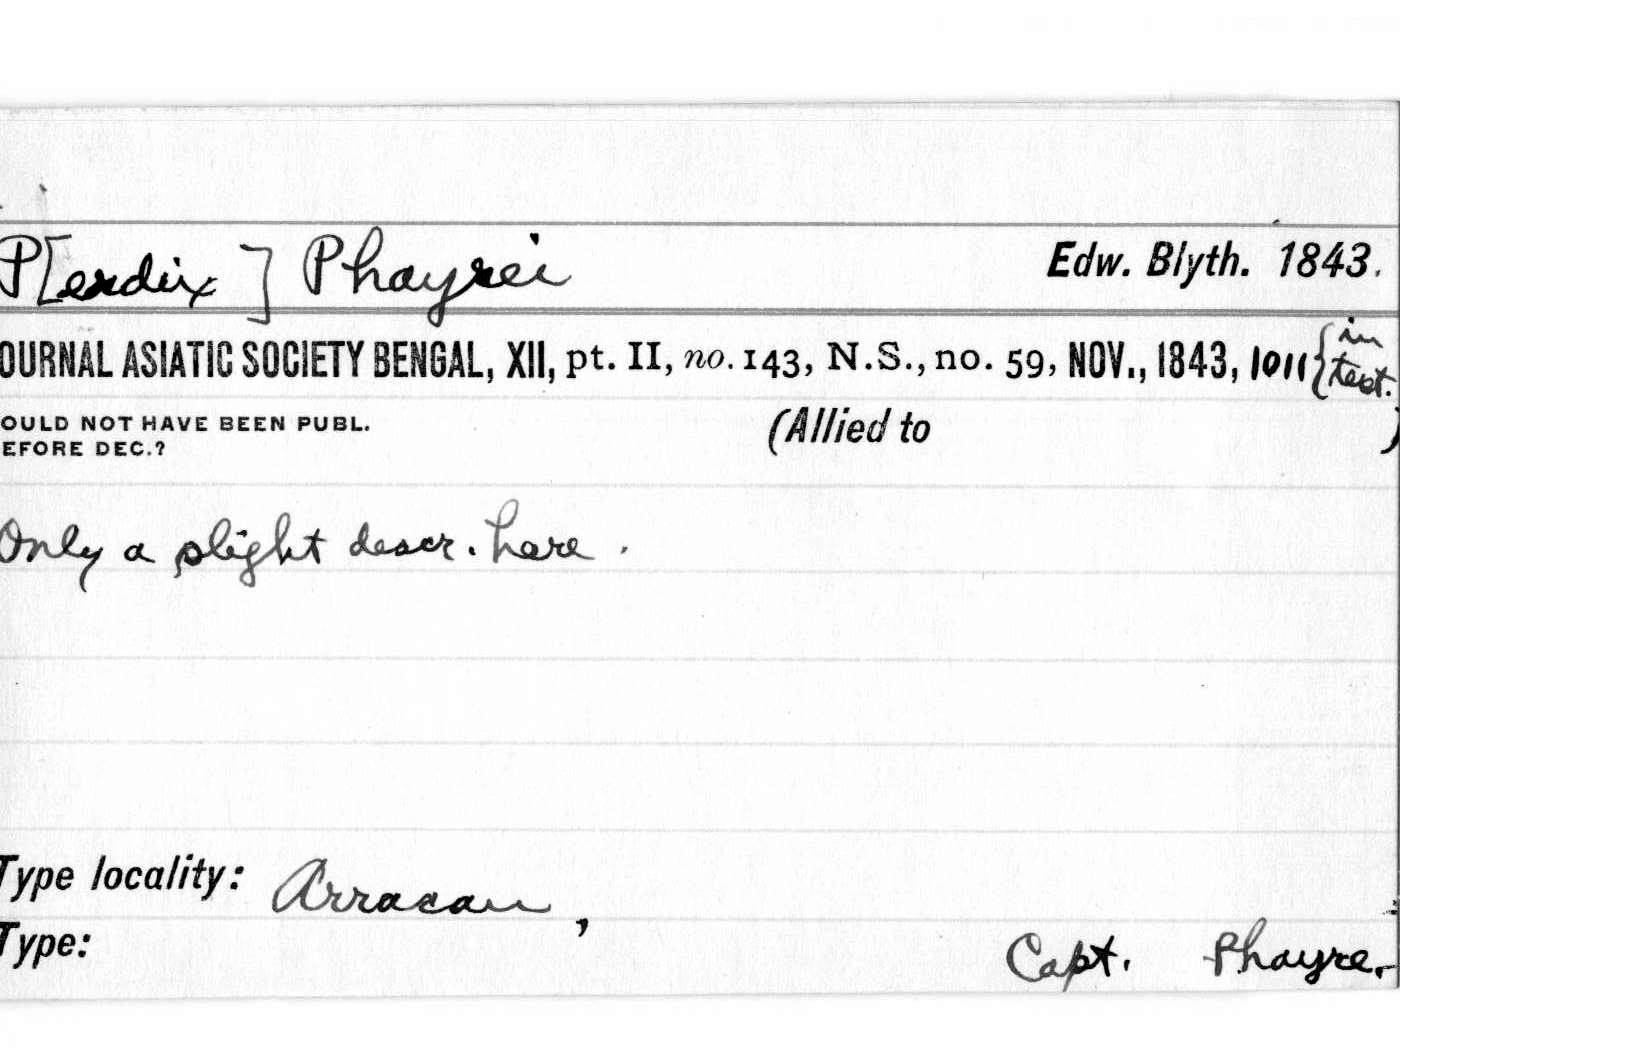 P[erdix] Phayrei Edw. Blyth. 1843.
OURNAL ASIATIC SOCIETY BENGAL, XII, pt. II, no. 143, N.S., no. 59, NOV., 1843, 1011 {in text.
OULD NOT HAVE BEEN PUBL. (Allied to )
EFORE DEC.?
Only a slight descr. here.
Type locality: Arracan,
Type: Capt. Phayre.